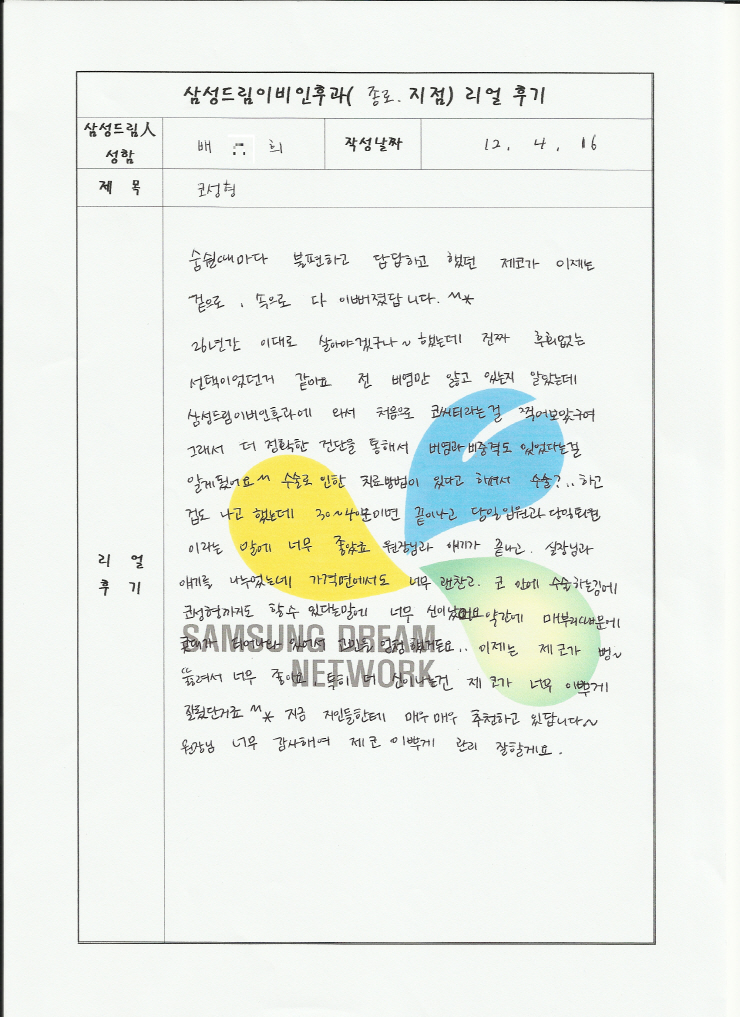 삼성드림이비인후과( 종로. 지점) 리얼 후기
삼성드림人 성함
배 희
작성날짜
12. 4. 16
제 목
코성형
리 얼 후 기
숨쉴때마다 불편하고 답답하고 했던 제코가 이제는
겉으로, 속으로 다 이뻐졌답니다. ^^*
26년간 이대로 살아야겠구나~ 했는데 진짜 후회없는
선택이었던거 같아요 전 비염만 앓고 있는지 알았는데
삼성드림이비인후과에 와서 처음으로 코씨티라는걸 찍어보았구여
그래서 더 정확한 진단을 통해서 비염과 비중격도 있었다는걸
알게됬어요^^ 수술로 인한 치료방법이 있다고 하셔서 수술?.. 하고
겁도 나고 했는데 30~40분이면 끝이나고 당일입원과 당일퇴원
이라는 말에 너무 좋았죠 원장님과 얘기가 끝나고. 실장님과
얘기를 나누었는데 가격면에서도 너무 괜찬고. 코 안에 수술하는김에
코성형까지도 할수 있다는말에 너무 신이났어요 약간에 매부리때문에
튀어나와 있어서 고민을 엄청했거든요.. 이제는 제 코가 뻥~
뚫려서 너무 좋아요. 특히 더 신이나는건 제 코가 너무 이쁘게
잘됬단거죠 ^^* 지금 지인들한테 매우 매우 추천하고 있답니다~
원장님 너무 감사해여 제코 이쁘게 관리 잘할게요.
SAMSUNG DREAM
NETWORK